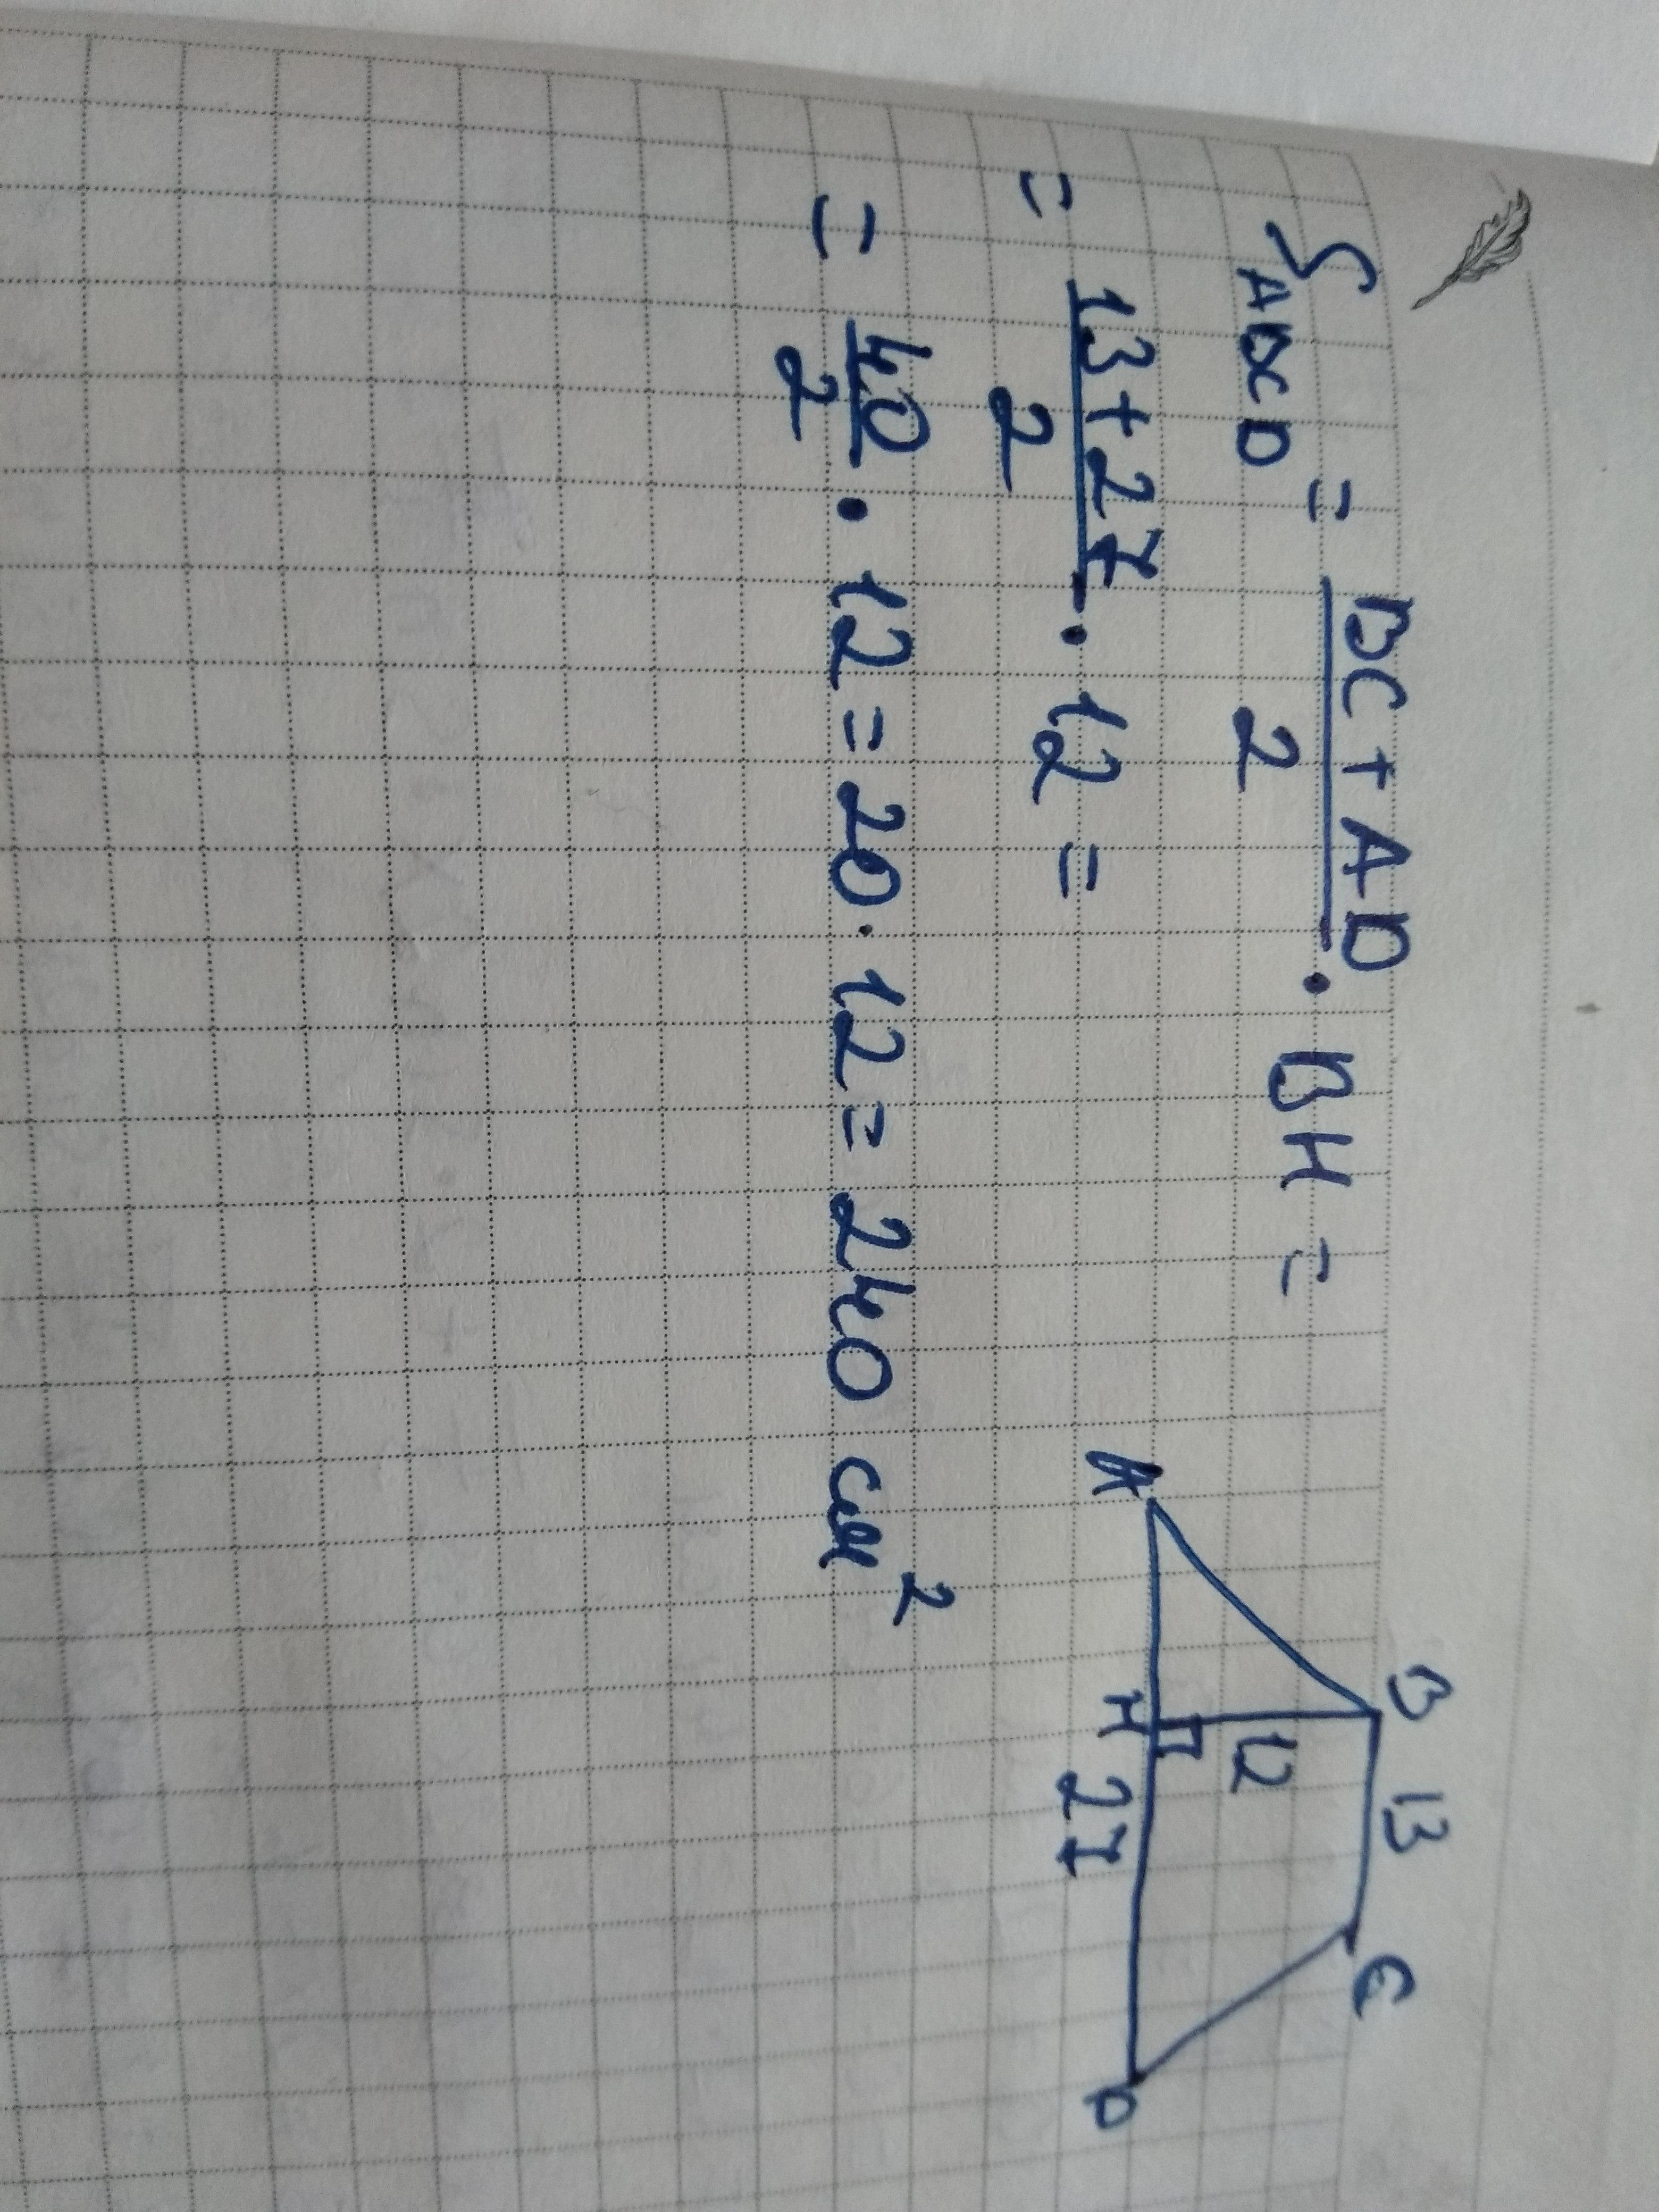 S ABCD = BC + AD / 2 · BH =
= 13 + 27 / 2 · 12 =
= 40 / 2 · 12 = 20 · 12 = 240 см²
B 13 C
12
A H 27 D